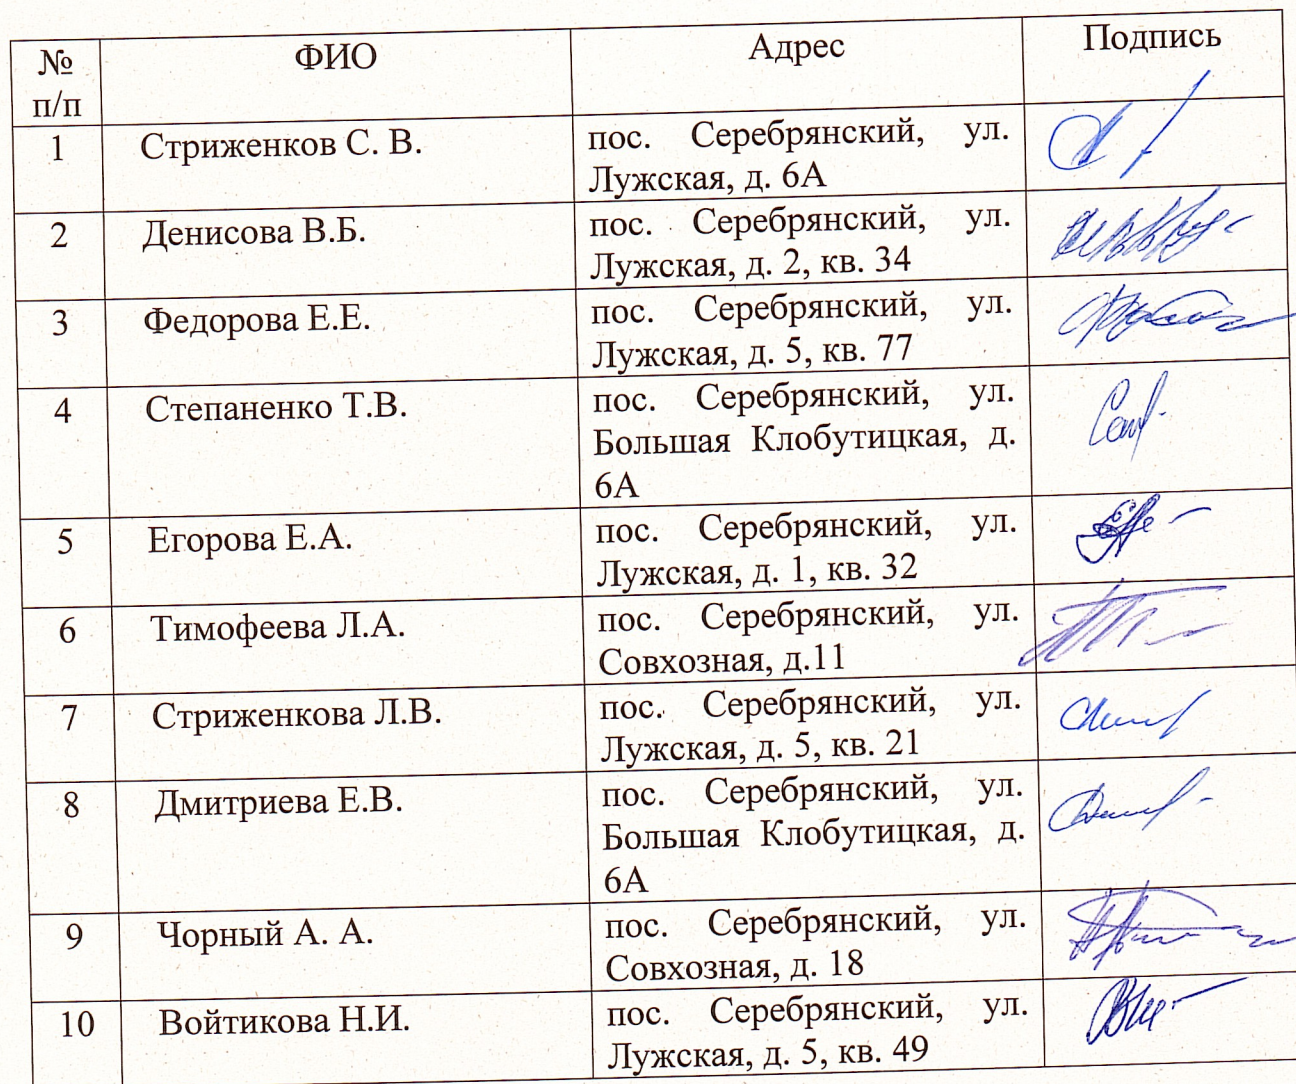 № п/п ФИО Адрес Подпись
1 Стриженков С. В. пос. Серебрянский, ул.
Лужская, д. 6А
2 Денисова В.Б. пос. Серебрянский, ул.
Лужская, д. 2, кв. 34
3 Федорова Е.Е. пос. Серебрянский, ул.
Лужская, д. 5, кв. 77
4 Степаненко Т.В. пос. Серебрянский, ул.
Большая Клобутицкая, д.
6А
5 Егорова Е.А. пос. Серебрянский, ул.
Лужская, д. 1, кв. 32
6 Тимофеева Л.А. пос. Серебрянский, ул.
Совхозная, д.11
7 Стриженкова Л.В. пос. Серебрянский, ул.
Лужская, д. 5, кв. 21
8 Дмитриева Е.В. пос. Серебрянский, ул.
Большая Клобутицкая, д.
6А
9 Чорный А. А. пос. Серебрянский, ул.
Совхозная, д. 18
10 Войтикова Н.И. пос. Серебрянский, ул.
Лужская, д. 5, кв. 49